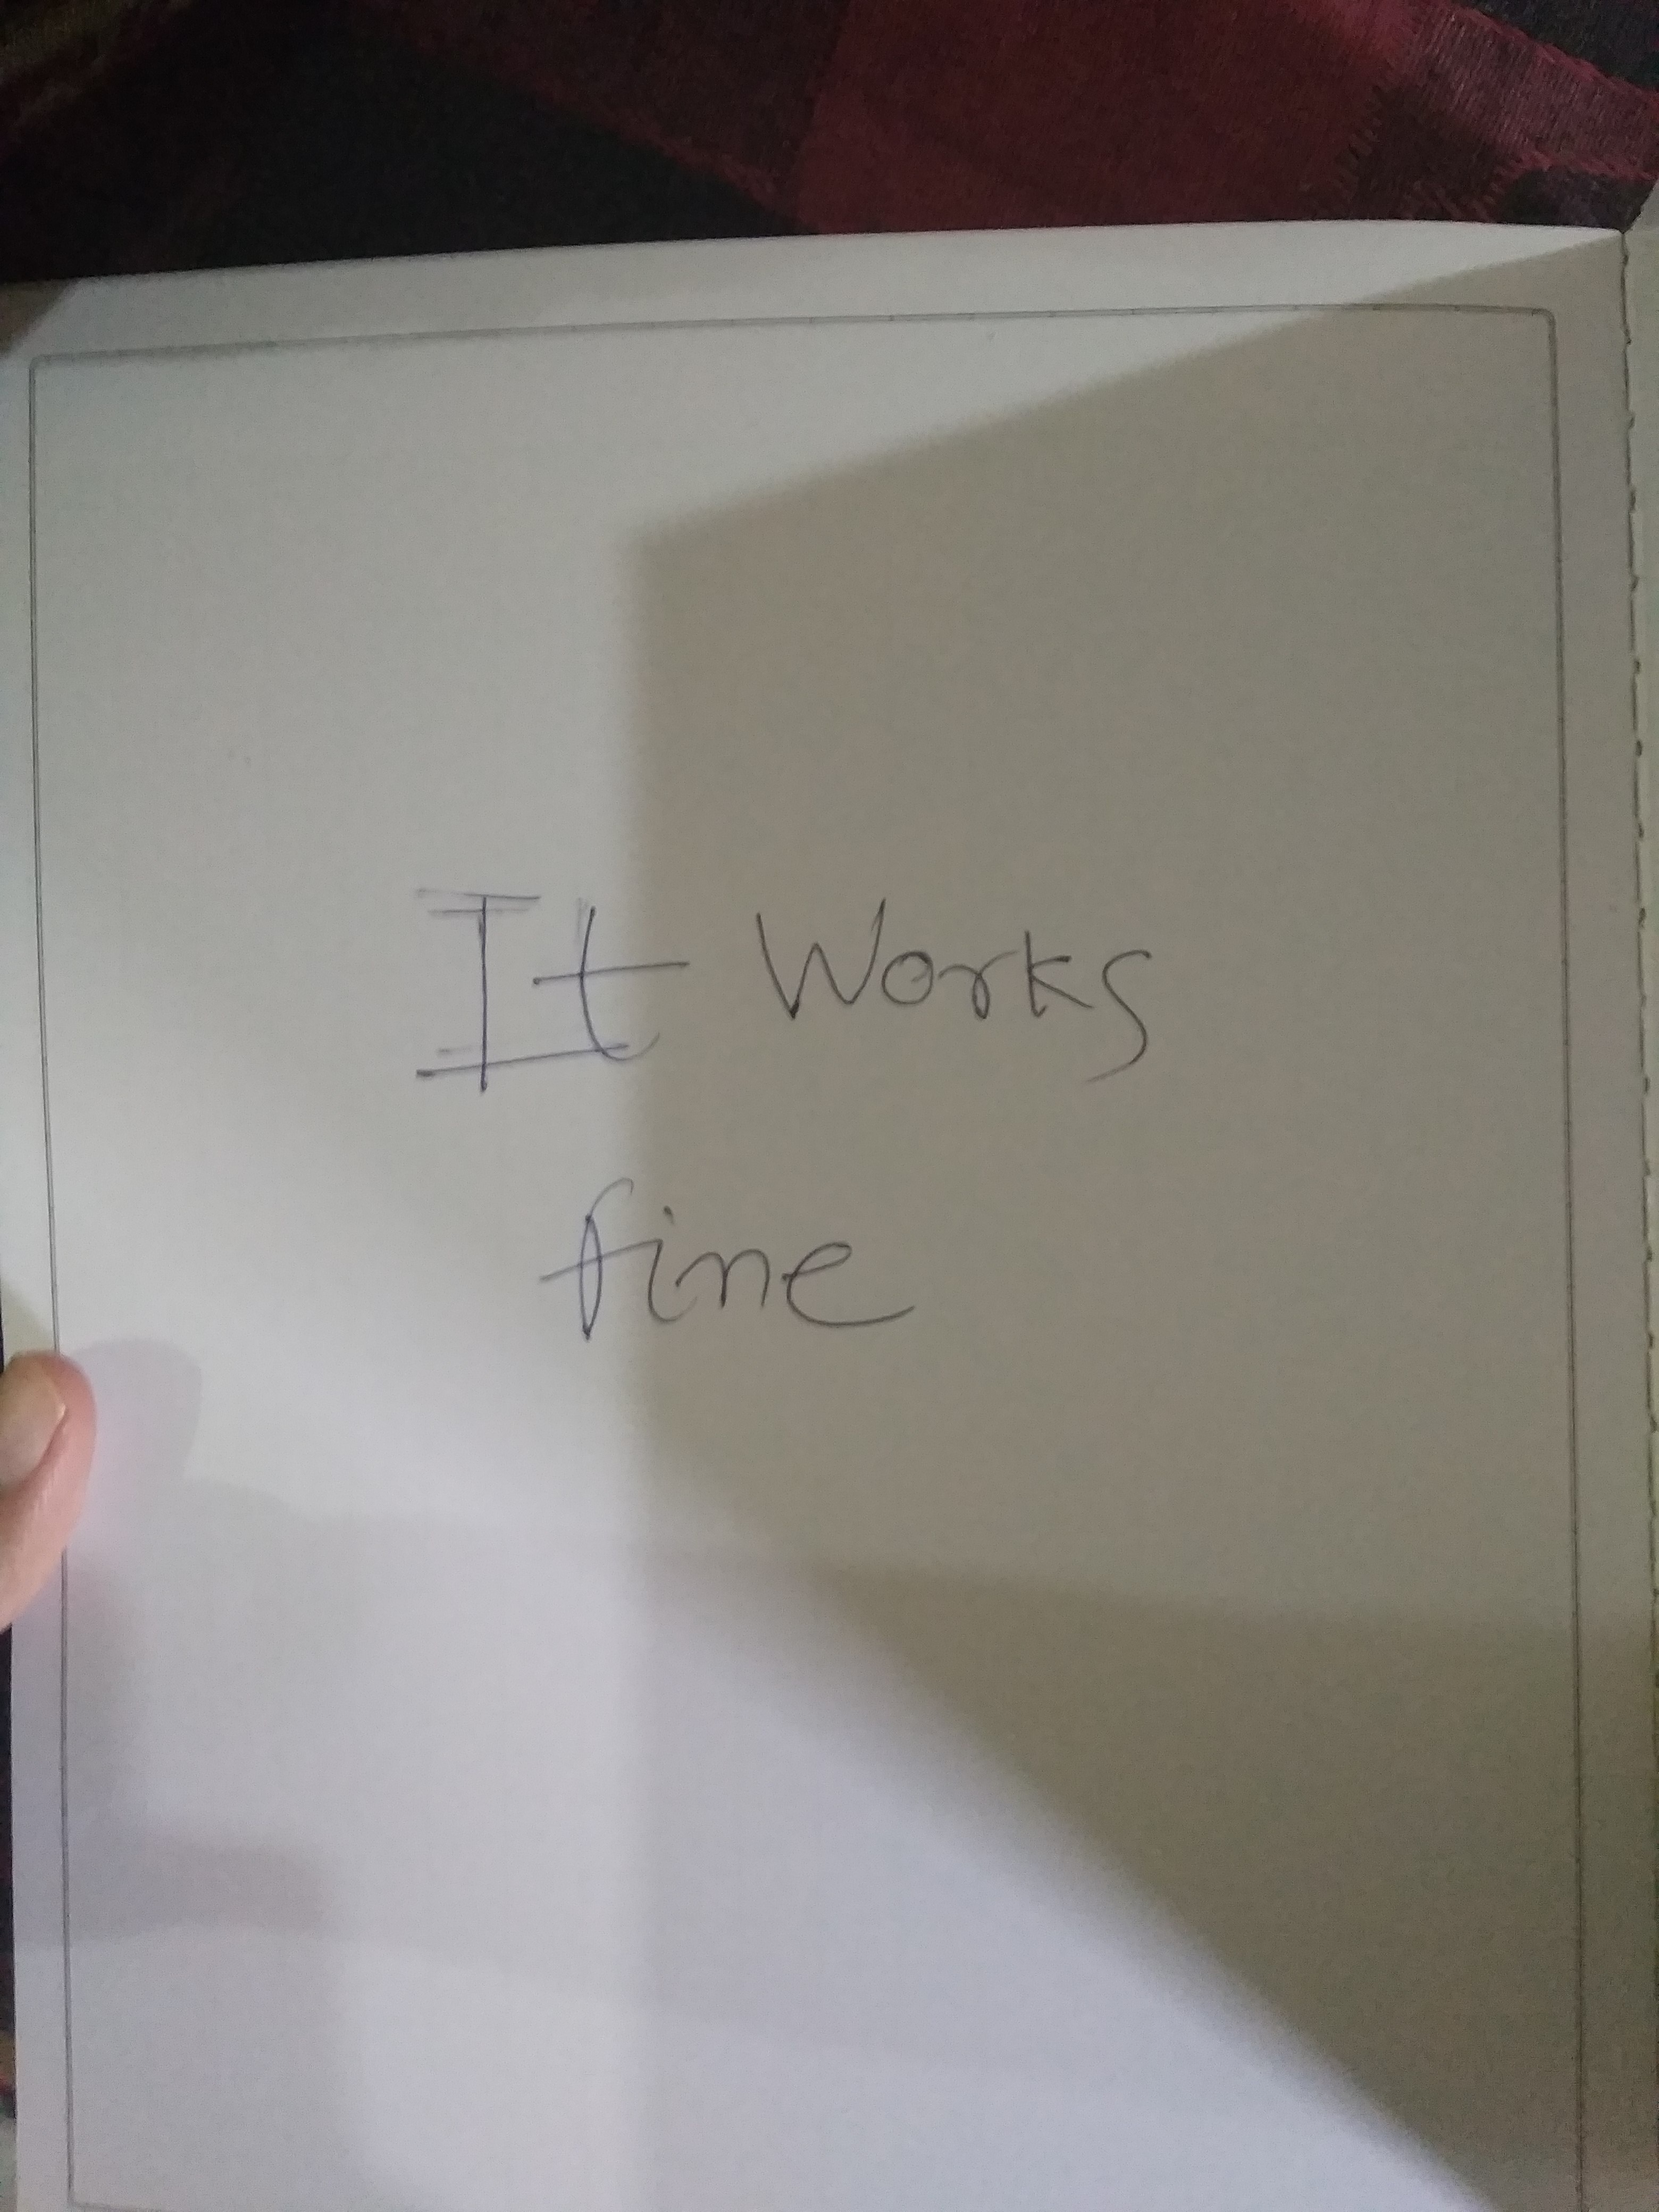 It Works
fine